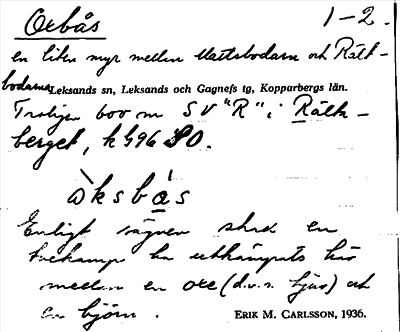 Oxbås 1-2.
en liten myr mellan Mattsbodarna och Rält-
bodarna Leksands sn, Leksands och Gagnefs tg, Kopparbergs län.
Troligen 600 m SV "R" i Rält-
berget, k 96 SO.
òksbås
Enligt sägnen skall en
tvekamp ha utkämpats här
mellan en oxe (d.v.s. tjur) och
en björn. ERIK M. CARLSSON, 1936.